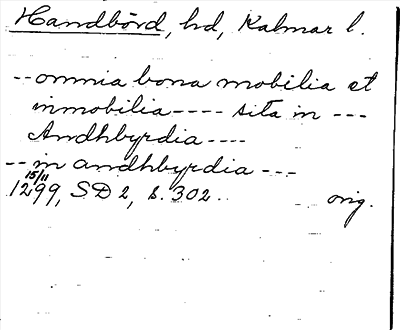 Handbörd, hd, Kalmar l.
-- omnia bona mobilia et
inmobilia ---- sita in ---
Andhbyrdia ----
-- in andhbyrdia ---
15/11
1299, SD 2, s. 302. orig.